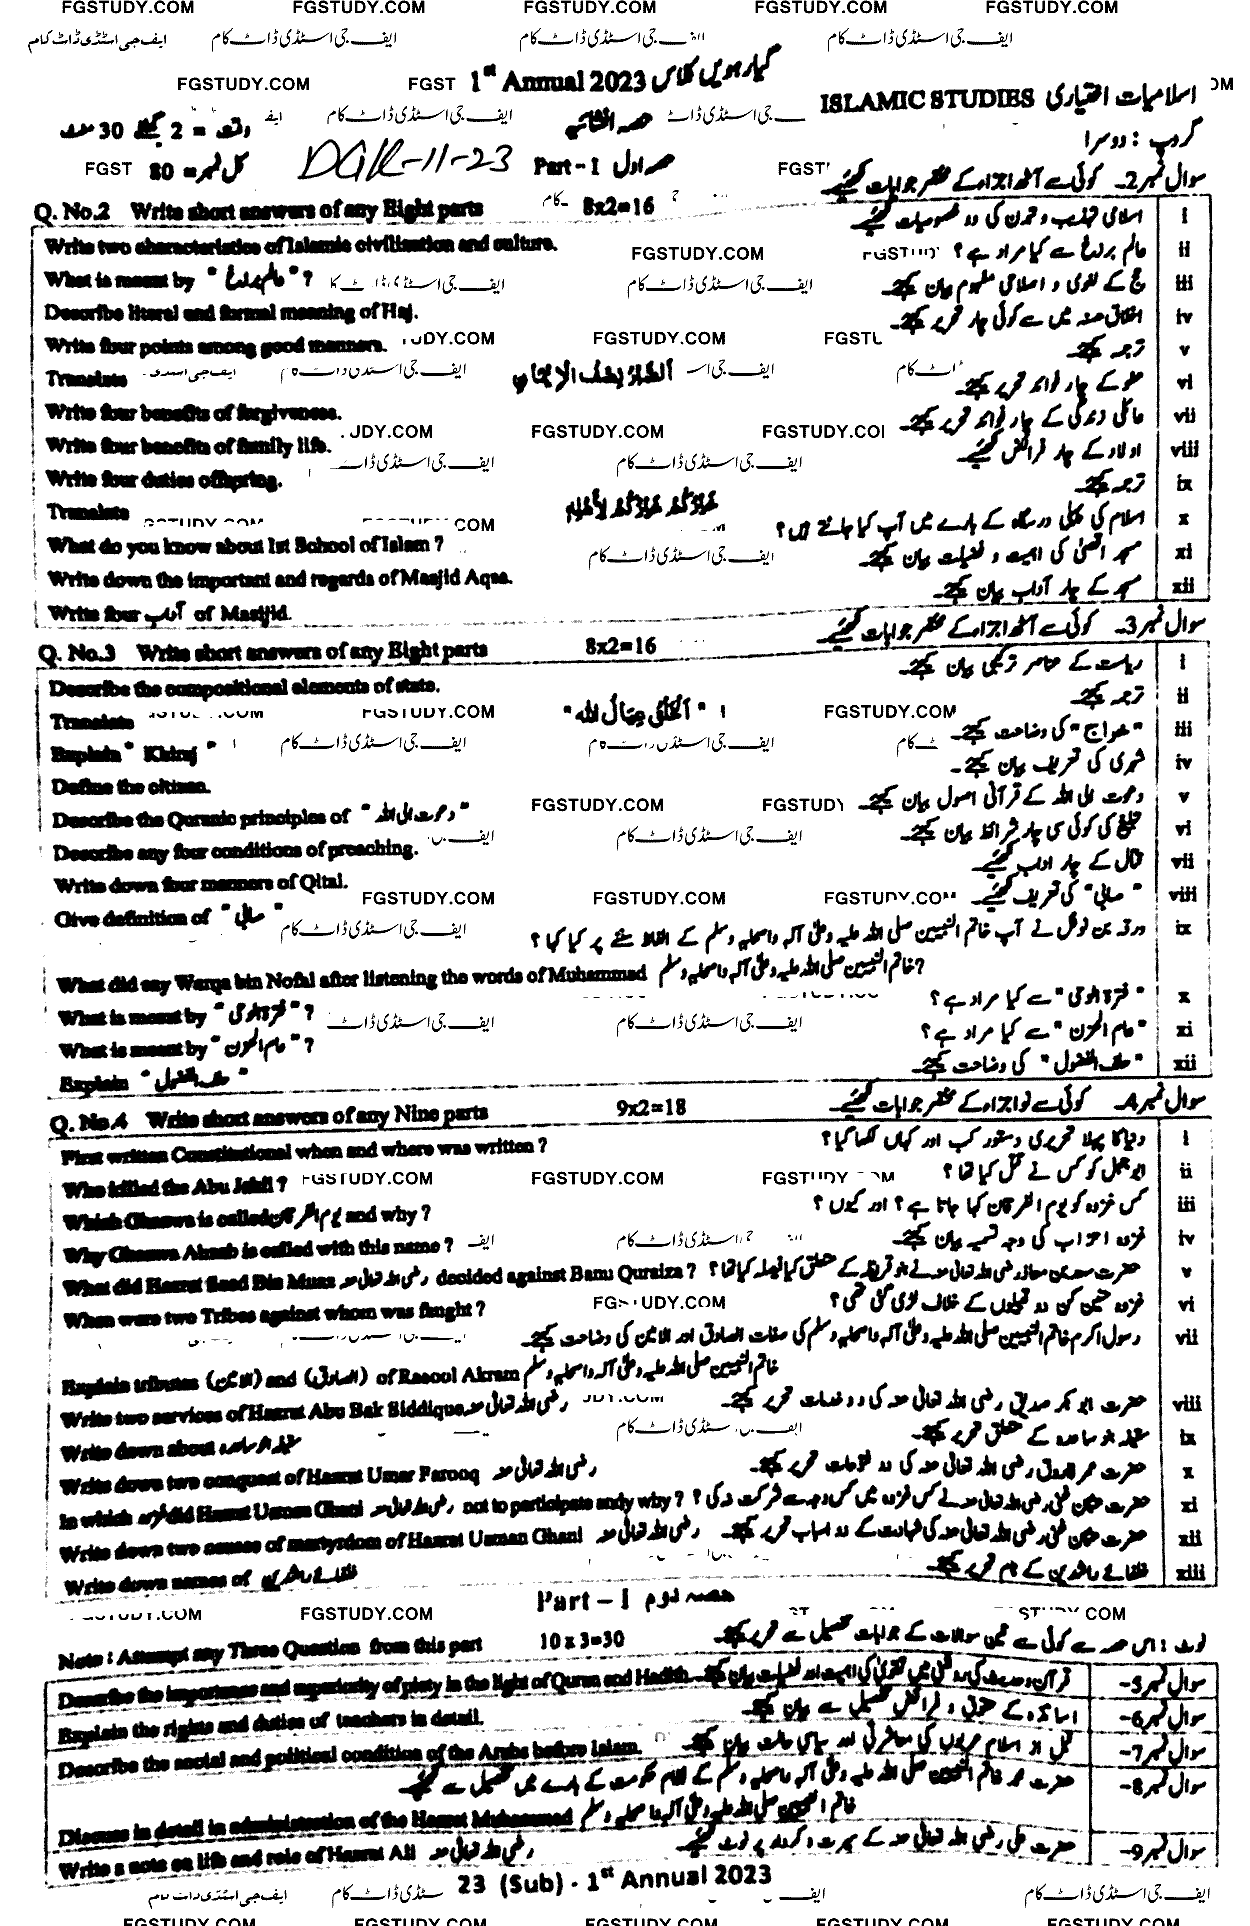 1st Annual 2023 گیارہویں کلاس
ISLAMIC STUDIES اسلامیات اختیاری
گروپ : دوسرا
حصہ انشائیہ
وقت = 2 گھنٹے 30 منٹ
کل نمبر = 80
DGK-11-23
Part - I حصہ اول
سوال نمبر 2۔ کوئی سے آٹھ اجزاء کے مختصر جوابات لکھئیے۔
Q. No.2 Write short answers of any Eight parts 8x2=16
i اسلامی تہذیب و تمدن کی دو خصوصیات لکھئیے۔
Write two characteristics of Islamic civilization and culture.
ii عالم برزخ سے کیا مراد ہے؟
What is meant by "عالم برزخ" ?
iii حج کے لغوی و اصلاحی مفہوم بیان کیجئے۔
Describe literal and formal meaning of Haj.
iv اخلاق حسنہ میں سے کوئی چار تحریر کیجئے۔
Write four points among good manners.
v ترجمہ کیجئے۔
Translate
vi عفو کے چار فوائد تحریر کیجئے۔
Write four benefits of forgiveness.
vii عائلی زندگی کے چار فوائد تحریر کیجئے۔
Write four benefits of family life.
viii اولاد کے چار فرائض لکھئیے۔
Write four duties offspring.
ix ترجمہ کیجئے۔
Translate خَيْرُكُمْ خَيْرُكُمْ لِأَهْلِهِ
x اسلام کی پہلی درسگاہ کے بارے میں آپ کیا جانتے ہیں؟
What do you know about Ist School of Islam ?
xi مسجد اقصیٰ کی اہمیت و فضیلت بیان کیجئے۔
Write down the important and regards of Masjid Aqsa.
xii مسجد کے چار آداب بیان کیجئے۔
Write four آداب of Masjid.
سوال نمبر 3۔ کوئی سے آٹھ اجزاء کے مختصر جوابات لکھئیے۔
Q. No.3 Write short answers of any Eight parts 8x2=16
i ریاست کے عناصر ترکیبی بیان کیجئے۔
Describe the compositional elements of state.
ii ترجمہ کیجئے۔
Translate "اَلْخَلْقُ عِيَالُ الله"
iii "خراج" کی وضاحت کیجئے۔
Explain " Khiraj "
iv شہری کی تعریف بیان کیجئے۔
Define the citizen.
v دعوت الی اللہ کے قرآنی اصول بیان کیجئے۔
Describe the Quranic principles of "دعوت الی اللہ"
vi تبلیغ کی کوئی سی چار شرائط بیان کیجئے۔
Describe any four conditions of preaching.
vii قتال کے چار اداب لکھئیے۔
Write down four manners of Qital.
viii "صابی" کی تعریف لکھئیے۔
Give definition of "صابی"
ix ورقہ بن نوفل نے آپ خاتم النبیین صلی اللہ علیہ وعلیٰ آلہ واصحابہ وسلم کے الفاظ سننے پر کیا کہا؟
What did say Warqa bin Nofal after listening the words of Muhammad خاتم النبیین صلی اللہ علیہ وعلیٰ آلہ واصحابہ وسلم?
x "فترۃ الوحی" سے کیا مراد ہے؟
What is meant by "فترۃ الوحی" ?
xi "عام الحزن" سے کیا مراد ہے؟
What is meant by "عام الحزن" ?
xii "حلف الفضول" کی وضاحت کیجئے۔
Explain "حلف الفضول"
سوال نمبر 4۔ کوئی سے نو اجزاء کے مختصر جوابات لکھئیے۔
Q. No.4 Write short answers of any Nine parts 9x2=18
i دنیا کا پہلا تحریری دستور کب اور کہاں لکھا گیا؟
First written Constitutional when and where was written ?
ii ابوجہل کو کس نے قتل کیا تھا؟
Who killed the Abu Jahil ?
iii کس غزوہ کو یوم الفرقان کہا جاتا ہے؟ اور کیوں؟
Which Ghazwa is called یوم الفرقان and why ?
iv غزوہ احزاب کی وجہ تسمیہ بیان کیجئے۔
Why Ghazwa Ahzab is called with this name ?
v حضرت سعد بن معاذ رضی اللہ تعالیٰ عنہ نے بنو قریظہ کے متعلق کیا فیصلہ کیا تھا؟
What did Hazrat Saad Bin Muaz رضی اللہ تعالیٰ عنہ decided against Banu Quraiza ?
vi غزوہ حنین کن دو قبیلوں کے خلاف لڑی گئی تھی؟
When were two Tribes against whom was faught ?
vii رسول اکرم خاتم النبیین صلی اللہ علیہ وعلیٰ آلہ واصحابہ وسلم کی صفات الصادق اور الامین کی وضاحت کیجئے۔
Explain tributes (الامین) and (الصادق) of Rasool Akram خاتم النبیین صلی اللہ علیہ وعلیٰ آلہ واصحابہ وسلم
viii حضرت ابوبکر صدیق رضی اللہ تعالیٰ عنہ کی دو خدمات تحریر کیجئے۔
Write two services of Hazrat Abu Bak Siddique رضی اللہ تعالیٰ عنہ
ix سقیفہ بنو ساعدہ کے متعلق تحریر کیجئے۔
Write down about سقیفہ بنو ساعدہ
x حضرت عمر فاروق رضی اللہ تعالیٰ عنہ کی دو فتوحات تحریر کیجئے۔
Write down two conquest of Hazrat Umar Farooq رضی اللہ تعالیٰ عنہ
xi حضرت عثمان غنی رضی اللہ تعالیٰ عنہ نے کس غزوہ میں کس وجہ سے شرکت نہ کی؟
In which غزوہ did Hazrat Usman Ghani رضی اللہ تعالیٰ عنہ not to participate andy why ?
xii حضرت عثمان غنی رضی اللہ تعالیٰ عنہ کی شہادت کے دو اسباب تحریر کیجئے۔
Write down two causes of martyrdom of Hazrat Usman Ghani رضی اللہ تعالیٰ عنہ
xiii خلفائے راشدین کے نام تحریر کیجئے۔
Write down names of خلفائے راشدین
Part - I حصہ دوم
نوٹ : اس حصہ سے کوئی سے تین سوالات کے جوابات تفصیل سے تحریر کیجئے۔
Note : Attempt any Three Question from this part 10 x 3=30
سوال نمبر 5- قرآن وحدیث کی روشنی میں تقویٰ کی اہمیت اور فضیلت بیان کیجئے۔
Describe the importance and superiority of piety in the light of Quran and Hadith
سوال نمبر 6- اساتذہ کے حقوق و فرائض تفصیل سے بیان کیجئے۔
Explain the rights and duties of teachers in detail.
سوال نمبر 7- قبل از اسلام عربوں کی معاشرتی اور سیاسی حالت بیان کیجئے۔
Describe the social and political condition of the Arabs before Islam.
سوال نمبر 8- حضرت محمد خاتم النبیین صلی اللہ علیہ وعلیٰ آلہ واصحابہ وسلم کے نظام حکومت کے بارے میں تفصیل سے لکھئیے۔
Discuss in detail in administration of the Hazrat Muhammad خاتم النبیین صلی اللہ علیہ وعلیٰ آلہ واصحابہ وسلم
سوال نمبر 9- حضرت علی رضی اللہ تعالیٰ عنہ کے سیرت و کردار پر نوٹ لکھئیے۔
Write a note on life and role of Hazrat Ali رضی اللہ تعالیٰ عنہ
23 (Sub) - 1st Annual 2023
FGSTUDY.COM
ایف جی اسٹڈی ڈاٹ کام